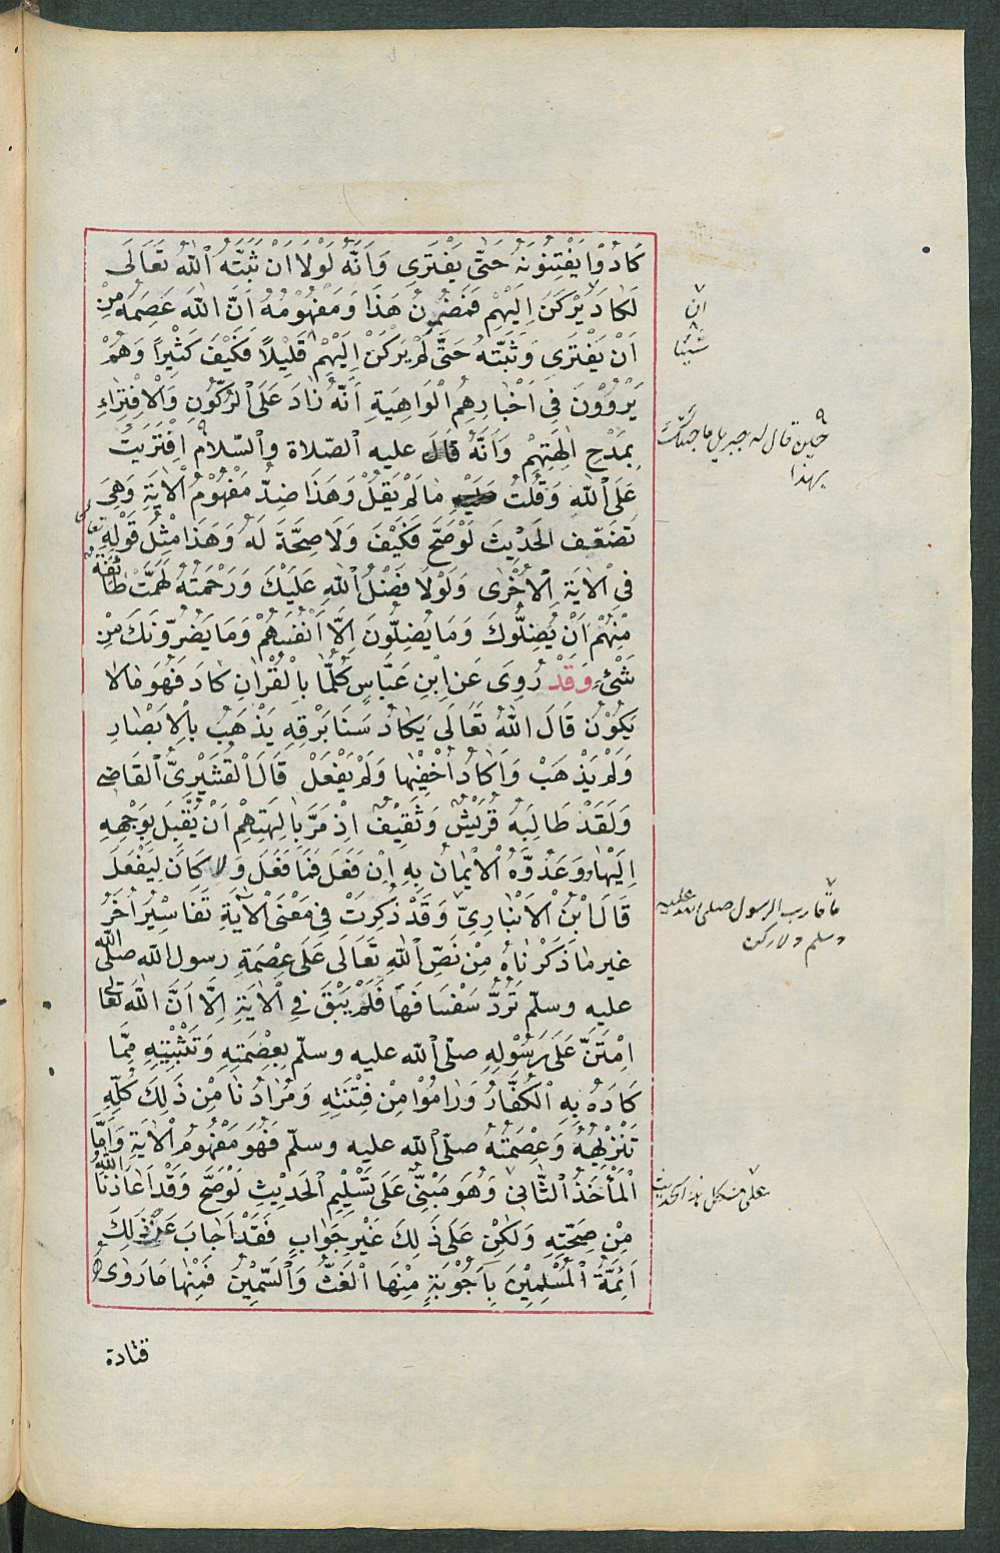 كَادُوْا يَفْتِنُوْنَهُ حَتّٰى يَفْتَرِي وَاَنَّهُ لَوْلَا اَنْ ثَبَّتَهُ اللّٰهُ تَعَالَى
لَكَادَ يَرْكَنُ اِلَيْهِمْ فَمَضْمُونُ هَذَا وَمَفْهُومُهُ اَنَّ اللّٰهَ عَصَمَهُ مِنْ
اَنْ يَفْتَرِى وَثَبَّتَهُ حَتّٰى لَمْ يَرْكَنْ اِلَيْهِمْ قَلِيْلاً فَكَيْفَ كَثِيْراً وَهُمْ
يَرْوُوْنَ فِي اَخْبَارِهِمُ الْوَاهِيَةِ اَنَّهُ زَادَ عَلَى الرُّكُونِ وَالْاِفْتِرَاءِ
بِمَدْحِ اٰلِهَتِهِمْ وَاَنَّهُ قَالَ عليه الصّلاة والسّلام اِفْتَرَيْتُ
عَلَى اللّٰهِ وَقُلْتُ مَا لَمْ يَقُلْ وَهَذَا ضِدُّ مَفْهُوْمُ الْاٰيَةِ وَهِيَ
تُضَعِّفُ الْحَدِيْثَ لَوْ صَحَّ فَكَيْفَ وَلَا صِحَّةَ لَهُ وَهَذَا مِثْلُ قَوْلِهِ تعالى
فِي الْاٰيَةِ الْاُخْرٰى وَلَوْلَا فَضْلُ اللّٰهِ عَلَيْكَ وَرَحْمَتُهُ لَهَمَّتْ طَائِفَةٌ
مِنْهُمْ اَنْ يُضِلُّوكَ وَمَا يُضِلُّونَ اِلَّا اَنْفُسَهُمْ وَمَا يَضُرُّونَكَ مِنْ
شَيْءٍ وَقَدْ رُوِىَ عَنِ ابْنِ عَبَّاسٍ كُلَّمَا بِالْقُرْاٰنِ كَادَ فَهُوَ مَا لَا
يَكُوْنُ قَالَ اللّٰهُ تَعَالَى يَكَادُ سَنَا بَرْقِهِ يَذْهَبُ بِالْاَبْصَارِ
وَلَمْ يَذْهَبْ وَاَكَادُ اُخْفِيْهَا وَلَمْ يَفْعَلْ قَالَ الْقُشَيْرِىُّ الْقَاضِى
وَلَقَدْ طَالَبَهُ قُرَيْشٌ وَثَقِيْفٌ اِذْ مَرَّ بِاٰلِهَتِهِمْ اَنْ يُقْبِلَ بِوَجْهِهِ
اِلَيْهَا وَوَعَدُوْهُ الْاِيْمَانَ بِهِ اِنْ فَعَلَ فَمَا فَعَلَ وَلَا كَانَ لِيَفْعَلَ
قَالَ ابْنُ الْاَنْبَارِىِّ وَقَدْ ذُكِرَتْ فِي مَعْنَى الْاٰيَةِ تَفَاسِيْرُ اُخَرُ
غير مَا ذَكَرْنَاهُ مِنْ نَصِّ اللّٰهِ تَعَالَى عَلَى عِصْمَةِ رسول الله صلّى الله
عليه وسلّم تَرُدُّ سَفْسَافَهَا فَلَمْ يَبْقَ فِي الْاٰيَةِ اِلَّا اَنَّ اللّٰهَ تعالى
امْتَنَّ عَلَى رَسُوْلِهِ صلّى الله عليه وسلّم بِعِصْمَتِهِ وَتَثْبِيْتِهِ مِمَّا
كَادَهُ بِهِ الْكُفَّارُ وَرَامُوْا مِنْ فِتْنَتِهِ وَمُرَادُنَا مِنْ ذَلِكَ كُلِّهِ
تَنْزِيْهُهُ وَعِصْمَتُهُ صلّى الله عليه وسلّم فَهُوَ مَفْهُومُ الْاٰيَةِ وَاَمَّا
الْمَأْخَذُ الثَّانِيْ وَهُوَ مَبْنِىٌّ عَلَى تَسْلِيْمِ الْحَدِيْثِ لَوْ صَحَّ وَقَدْ اَعَاذَنَا اللّٰهُ
مِنْ صِحَّتِهِ وَلٰكِنْ عَلَى ذَلِكَ غَيْرِ جَوَابٍ فَقَدْ اَجَابَ عَنْ ذَلِكَ
اَئِمَّةُ الْمُسْلِمِيْنَ بِاَجْوِبَةٍ مِنْهَا الْغَثُّ وَالسَّمِيْنُ فَمِنْهَا مَا رَوٰى
قتادة
ان
شيئا
حين قال له جبريل ما جئتك
بهذا
ما قارب الرسول صلى الله عليه
وسلم ولا ركن
على مشكل هذا الحديث